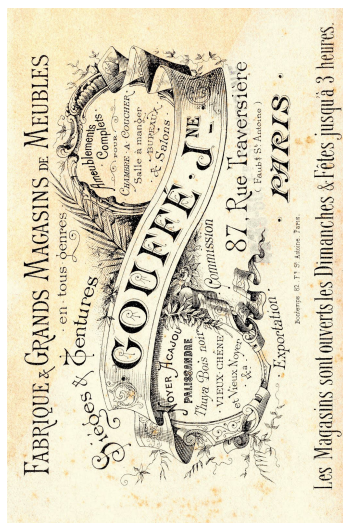 FABRIQUE & GRANDS MAGASINS DE MEUBLES
en tous genres
Sièges & Tentures
Ameublements
Complets
POUR
CHAMBRE A COUCHER
Salle à manger
BUREAUX
& Salons
GOUFFÉ JNE
NOYER ACAJOU
PALISSANDRE
Thuya Bois noir
VIEUX-CHÊNE
et Vieux Noyer
&a
Commission
Exportation
87, Rue Traversière
(Faubg St Antoine)
PARIS
St Antoine, Paris.
Les Magasins sont ouverts les Dimanches & Fêtes jusqu'à 3 heures.